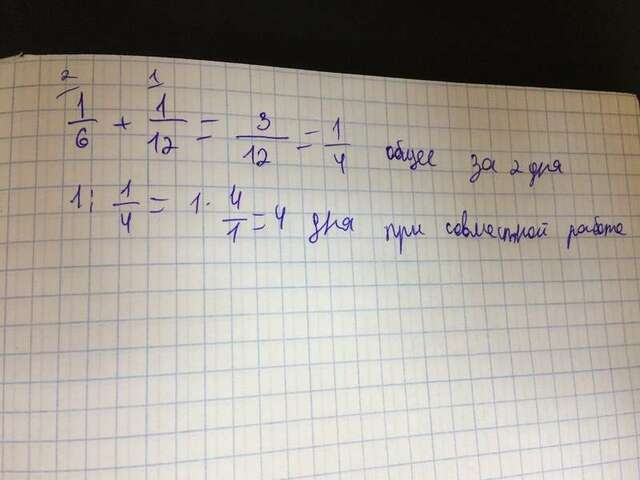 2 1
1/6 + 1/12 = 3/12 = 1/4 общее за 2 дня
1 : 1/4 = 1 · 4/1 = 4 дня при совместной работе